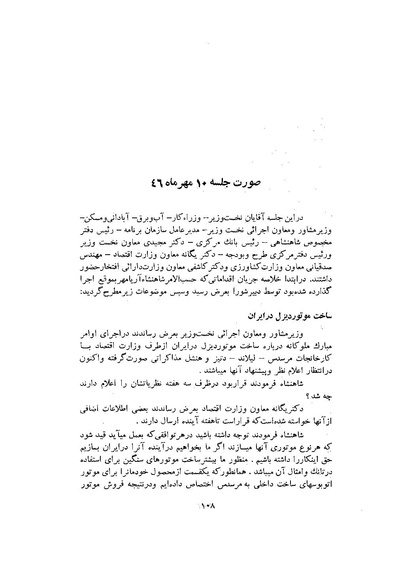 صورت جلسه ۱۰ مهرماه ۴۶
دراین جلسه آقایان نخست‌وزیر– وزراءکار– آب‌وبرق– آبادانی‌ومسکن–
وزیرمشاور ومعاون اجرائی نخست وزیر– مدیرعامل سازمان برنامه – رئیس دفتر
مخصوص شاهنشاهی – رئیس بانک مرکزی – دکتر مجیدی معاون نخست وزیر
ورئیس دفترمرکزی طرح وبودجه – دکتر یگانه معاون وزارت اقتصاد – مهندس
صدقیانی معاون وزارت‌کشاورزی ودکترکاشفی معاون وزارت‌دارائی افتخارحضور
داشتند. درابتدا خلاصه جریان اقداماتی‌که حسب‌الامرشاهنشاه‌آریامهر بموقع اجرا
گذارده شده‌بود توسط دبیرشورا بعرض رسید وسپس موضوعات زیرمطرح‌گردید:
ساخت موتوردیزل درایران
وزیرمشاور ومعاون اجرائی نخست‌وزیر بعرض رساندند دراجرای اوامر
مبارک ملوکانه درباره ساخت موتوردیزل درایران ازطرف وزارت اقتصاد بــا
کارخانجات مرسدس – لیلاند – دتیز و هنشل مذاکراتی صورت‌گرفته واکنون
درانتظار اعلام نظر وپیشنهاد آنها میباشند .
شاهنشاه فرمودند قراربود درظرف سه هفته نظریاتشان را اعلام دارند
چه شد ؟
دکتریگانه معاون وزارت اقتصاد بعرض رساندند بعضی اطلاعات اضافی
ازآنها خواسته شده‌است‌که قراراست تاهفته آینده ارسال دارند .
شاهنشاه فرمودند توجه داشته باشید درهرتوافقی‌که بعمل میآید قید شود
که هرنوع موتوری آنها میسازند اگر ما بخواهیم درآینده آنرا درایران بسازیم
حق اینکاررا داشته باشیم . منظور ما بیشترساخت موتورهای سنگین برای استفاده
درتانک وامثال آن میباشد . همانطورکه یکقسمت ازمحصول خودمانرا برای موتور
اتوبوسهای ساخت داخلی به مرسدس اختصاص داده‌ایم ودرنتیجه فروش موتور
۱۰۸